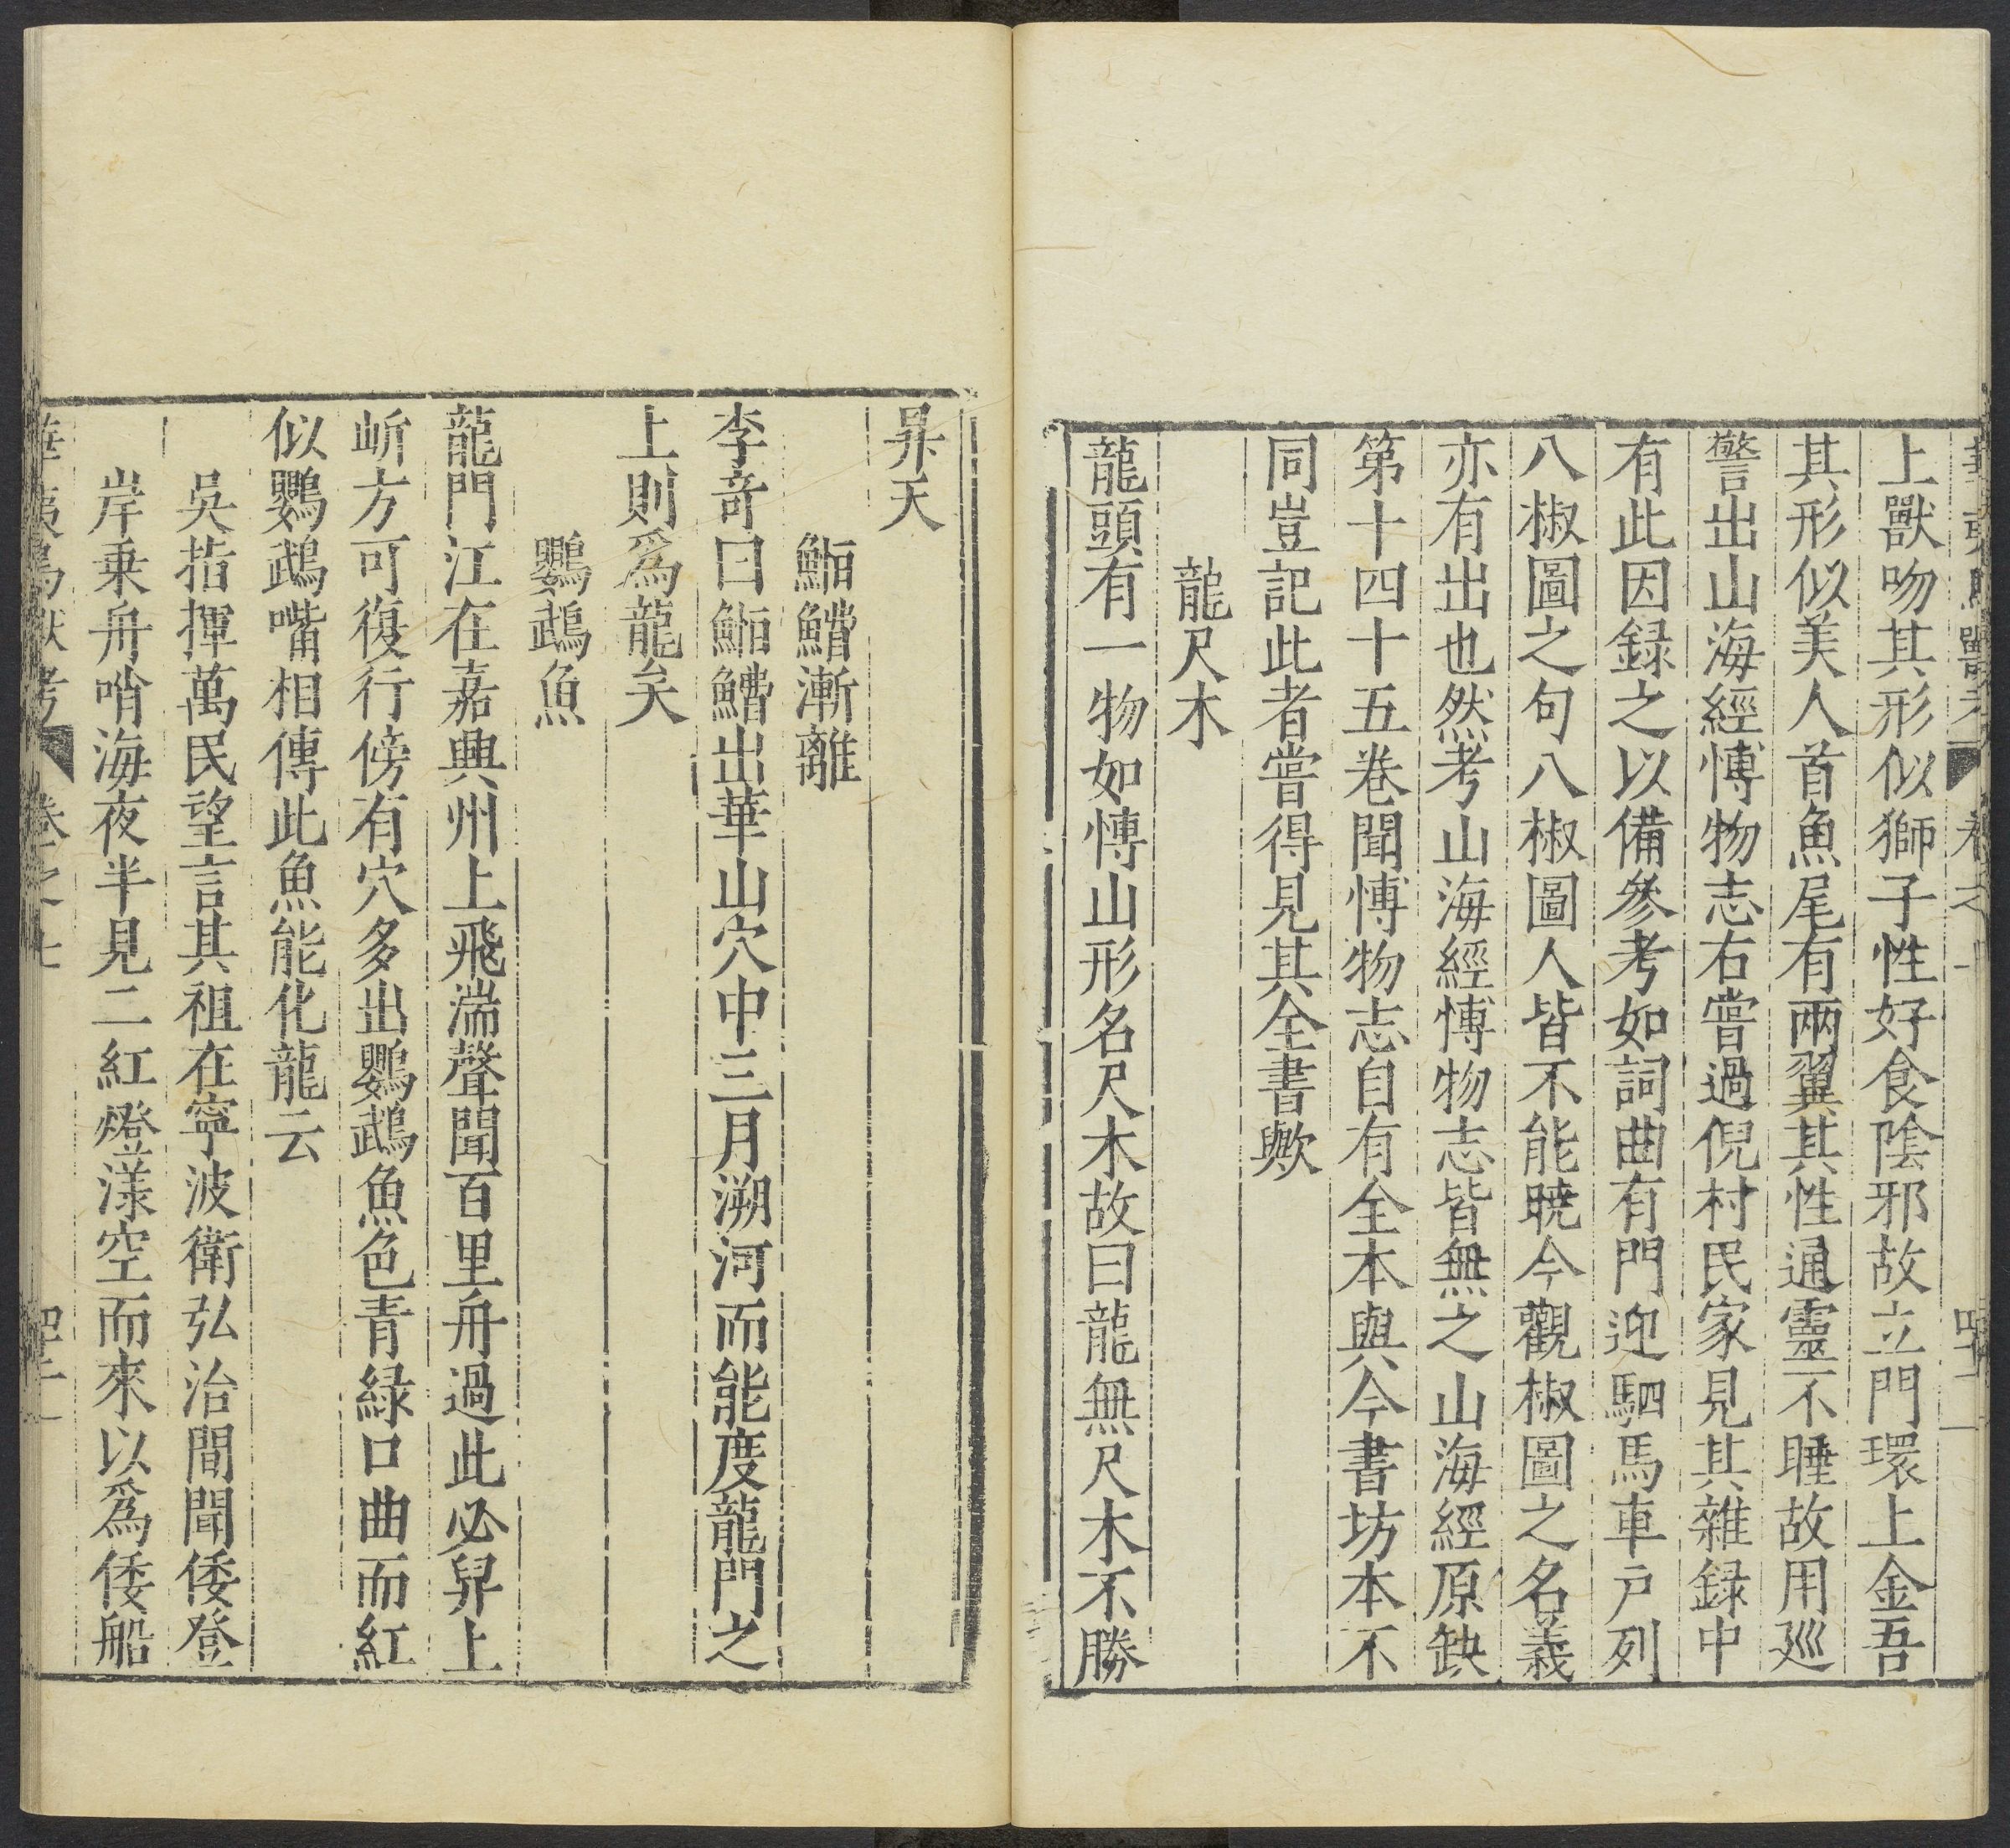 上獸吻其形似獅子性好食陰邪故立門環上金吾
其形似美人首魚尾有兩翼其性通靈不睡故用廵
警出山海經愽物志右嘗過倪村民家見其雜録中
有此因録之以備參考如詞曲有門迎駟馬車戸列
八椒圖之句八椒圖人皆不能曉今觀椒圖之名義
亦有出也然考山海經愽物志皆無之山海經原缺
第十四十五巻聞愽物志自有全本與今書坊本不
同豈記此者嘗得見其全書歟
龍尺木
龍頭有一物如愽山形名尺木故曰龍無尺木不勝
昇天
鮔鰽漸離
李竒曰鮔鰽出華山穴中三月溯河而能度龍門之
上則爲龍矣
鸚鵡魚
龍門江在嘉興州上飛湍聲聞百里舟過此必舁上
岓方可復行傍有穴多出鸚鵡魚色青綠口曲而紅
似鸚鵡嘴相傳此魚能化龍云
吳指揮萬民望言其祖在寧波衛弘治間聞倭登
岸乗舟哨海夜半見二紅燈漾空而來以爲倭船
華夷鳥獸考 卷之七